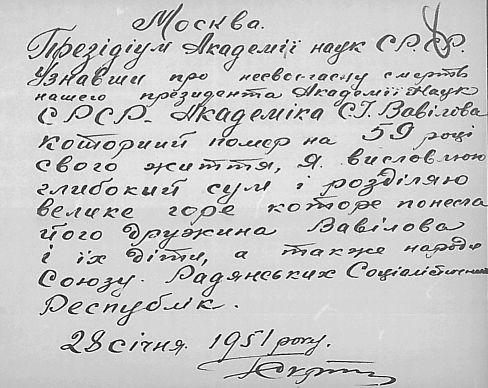 Москва.
Презідіум Академії наук С.Р.С.Р.
Узнавши про несвоєчасну смерть
нашего президента Академії Наук
СРСР. Академіка С.І. Вавілова
которий помер на 59 році
свого життя, Я висловлюю
глибокий сум і розділяю
велике горе которе понесла
його дружина Вавілова
і їх діти, а также народи
Союзу. Радянських Соціалістичних
Республік.
28 січня. 1951 року.